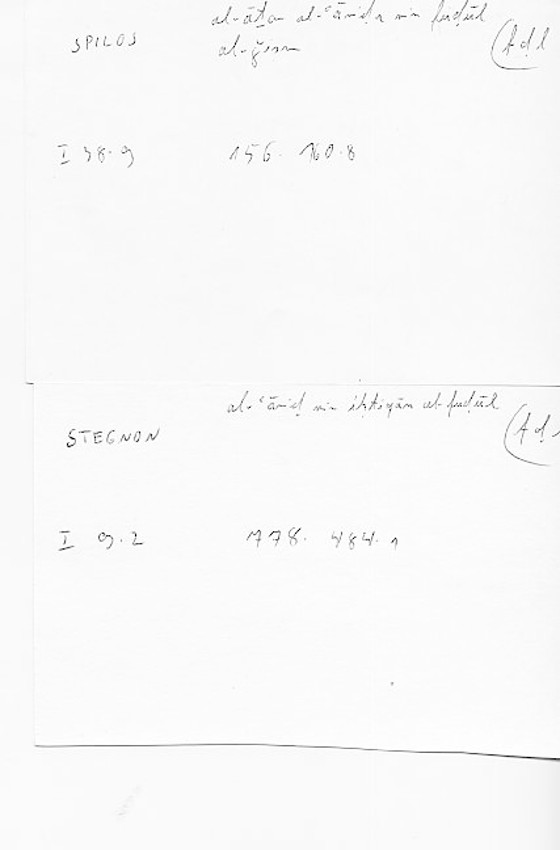 al-āṯār al-ʿāriḍa min fuḍūl
SPILOS al-ǧism (fḍl
I 38.9 156. 160.8
al-ʿāriḍ min iḥtiqān al-fuḍūl
STEGNON (fḍl
I 9.2 178. 484.1